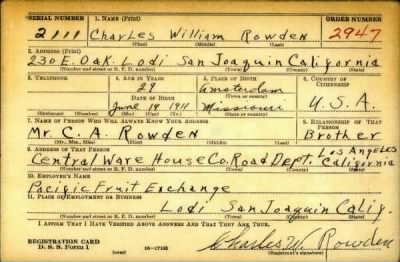 SERIAL NUMBER 1. NAME (Print) ORDER NUMBER
2111 Charles William Rowden 2947
(First) (Middle) (Last)
2. ADDRESS (Print)
230 E. Oak. Lodi San Joaquin California
(Number and street or R. F. D. number) (Town) (County) (State)
3. TELEPHONE 4. AGE IN YEARS 5. PLACE OF BIRTH 6. COUNTRY OF CITIZENSHIP
29 Amsterdam
DATE OF BIRTH (Town or county)
June 19 1911 Missouri U.S.A.
(Exchange) (Number) (Mo.) (Day) (Yr.) (State or country)
7. NAME OF PERSON WHO WILL ALWAYS KNOW YOUR ADDRESS 8. RELATIONSHIP OF THAT PERSON
Mr. C. A. Rowden Brother
(Mr., Mrs., Miss) (First) (Middle) (Last)
9. ADDRESS OF THAT PERSON Los Angeles
Central Ware House Co. Road Dept. California
(Number and street or R. F. D. number) (Town) (County) (State)
10. EMPLOYER'S NAME
Pacific Fruit Exchange
11. PLACE OF EMPLOYMENT OR BUSINESS
Lodi San Joaquin Calif.
(Number and street or R. F. D. number) (Town) (County) (State)
I AFFIRM THAT I HAVE VERIFIED ABOVE ANSWERS AND THAT THEY ARE TRUE.
REGISTRATION CARD
D. S. S. Form 1 (over) 16—17105 Charles W. Rowden
(Registrant's signature)